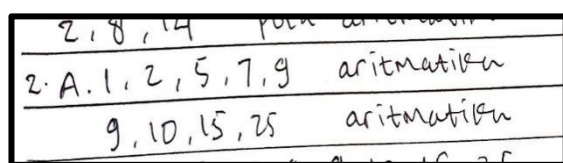 2, 8, 14 pola aritmatika
2. A. 1, 2, 5, 7, 9 aritmatika
9, 10, 15, 25 aritmatika